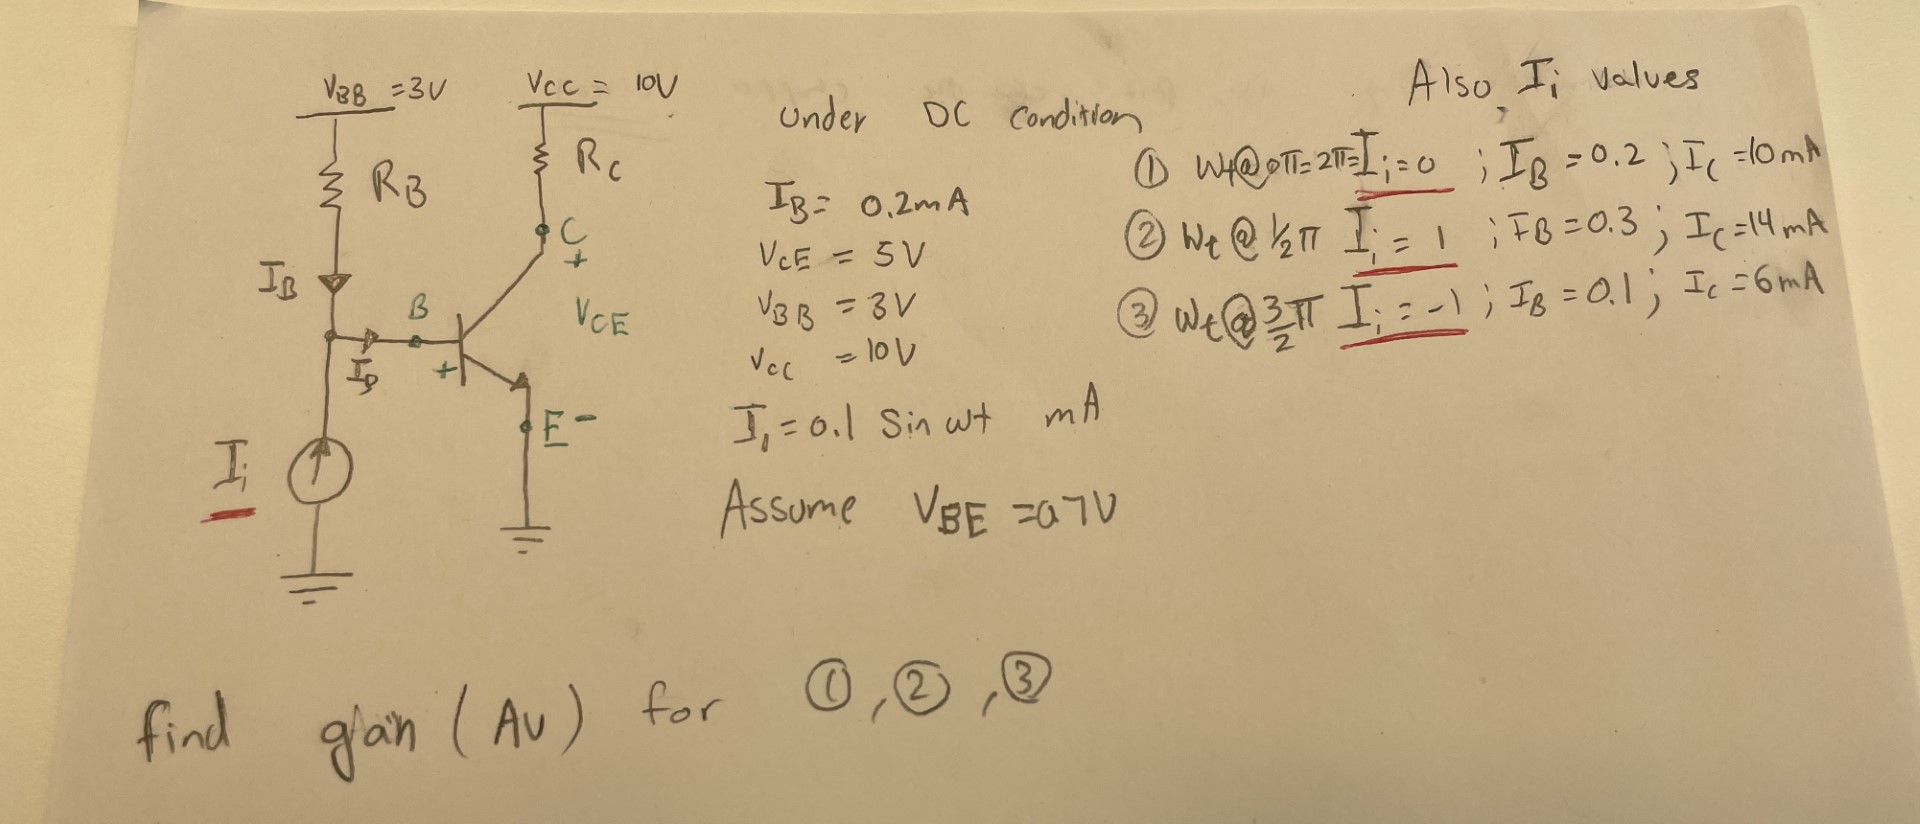 VBB = 3V
VCC = 10V
RB
RC
IB
B
+
IB
C
+
VCE
E -
Ii
Under DC Condition
IB = 0.2mA
VCE = 5V
VBB = 3V
VCC = 10V
I1 = 0.1 Sin wt mA
Assume VBE = 0.7V
Also, Ii values
① Wt@0π=2π= Ii=0 ; IB = 0.2 ; IC = 10mA
② Wt @ 1/2π Ii = 1 ; IB = 0.3 ; IC = 14mA
③ Wt@ 3/2 π Ii = -1 ; IB = 0.1 ; IC = 6mA
find gain (AU) for ①, ②, ③